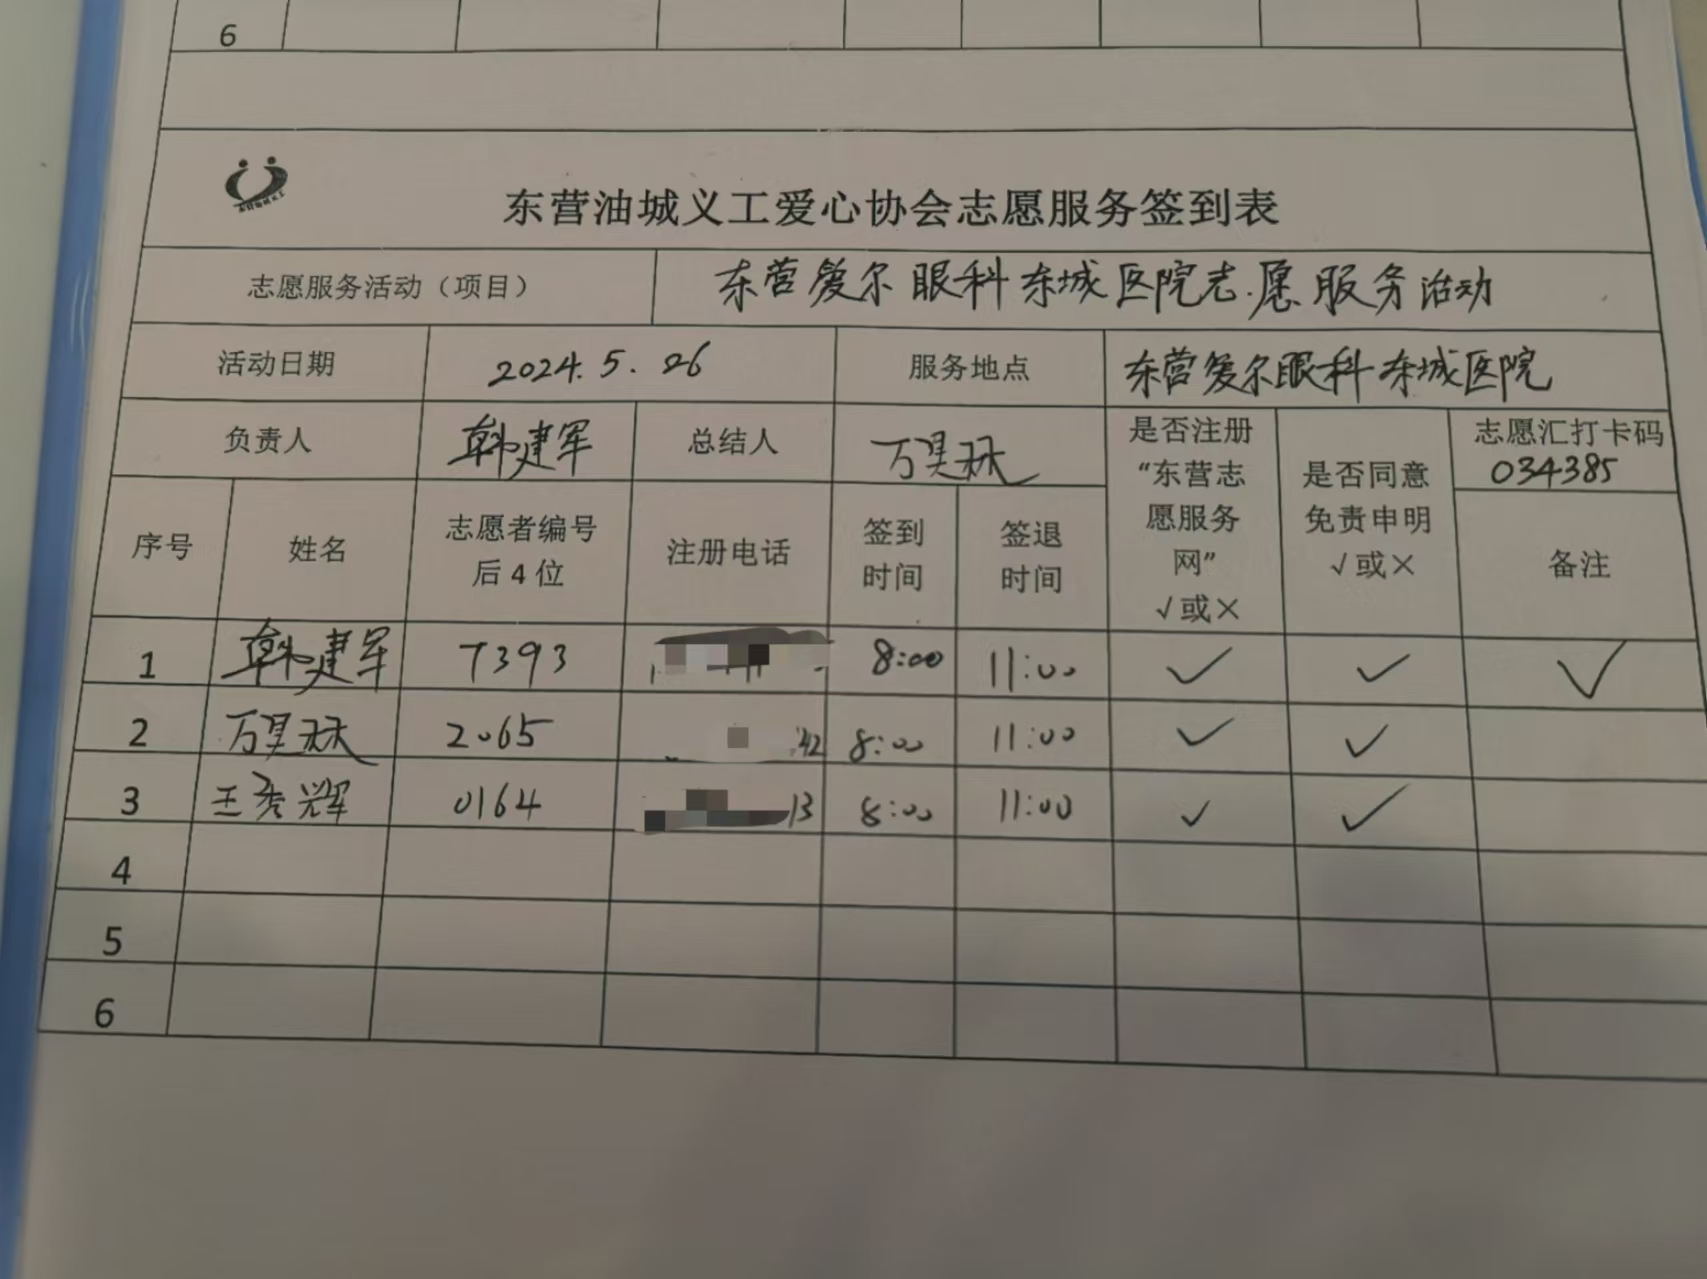 6
东营油城义工爱心协会志愿服务签到表
志愿服务活动（项目） 东营爱尔眼科东城医院志愿服务活动
活动日期 2024.5.26 服务地点 东营爱尔眼科东城医院
负责人 韩建军 总结人 万昊林 是否注册“东营志愿服务网”√或× 是否同意免责申明√或× 志愿汇打卡码 034385
序号 姓名 志愿者编号后4位 注册电话 签到时间 签退时间 备注
1 韩建军 7393 8:00 11:00 ✓ ✓ ✓
2 万昊林 2065 42 8:00 11:00 ✓ ✓
3 王秀辉 0164 13 8:00 11:00 ✓ ✓
4
5
6